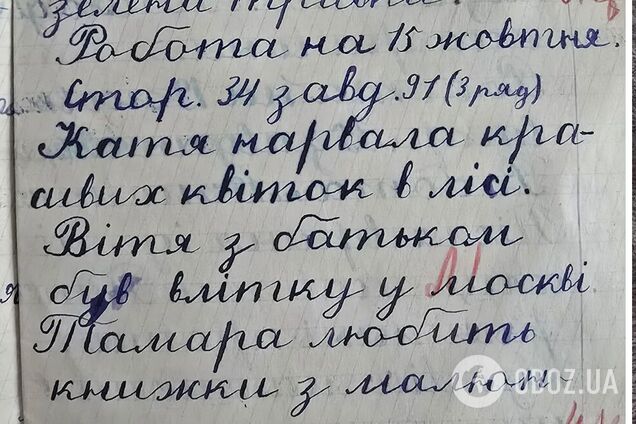 зелена травка.
Робота на 15 жовтня.
Стор. 34 завд. 91 (3 ряд)
Катя нарвала кра-
сивих квіток в лісі.
Вітя з батьком
був влітку у Москві
Тамара любить
книжки з малюн-
OBOZ.UA